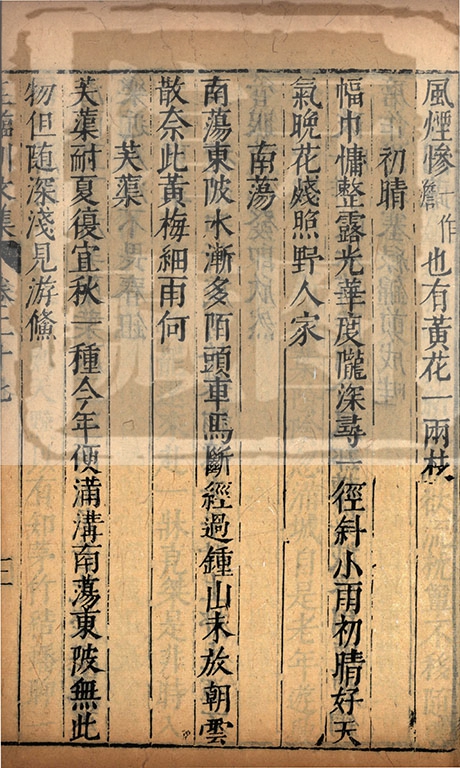 風煙慘一作也有黃花一兩枝
初晴
幅巾慵整露光華度隴深尋一徑斜小雨初晴好天
氣晚花殘照野人家
南蕩
南蕩東陂水漸多陌頭車馬斷經過鍾山未放朝雲
散奈此黃梅細雨何
芙蕖
芙蕖耐夏復宜秋一種今年便滿溝南蕩東陂無此
物但隨深淺見游鯈
王臨川文集 卷二十七